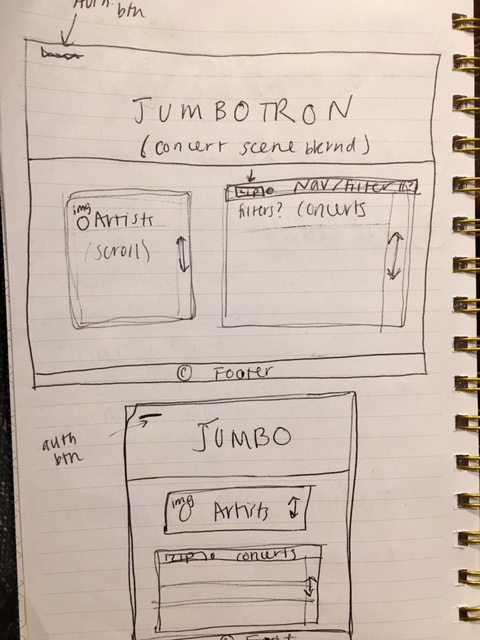 Auth.
btn
JUMBOTRON
(concert scene blernd)
img
Artists
(scroll)
zip
Nav/Filter
filters? concerts
© Footer
auth
btn
JUMBO
img
Artists
zip concerts
© Foot